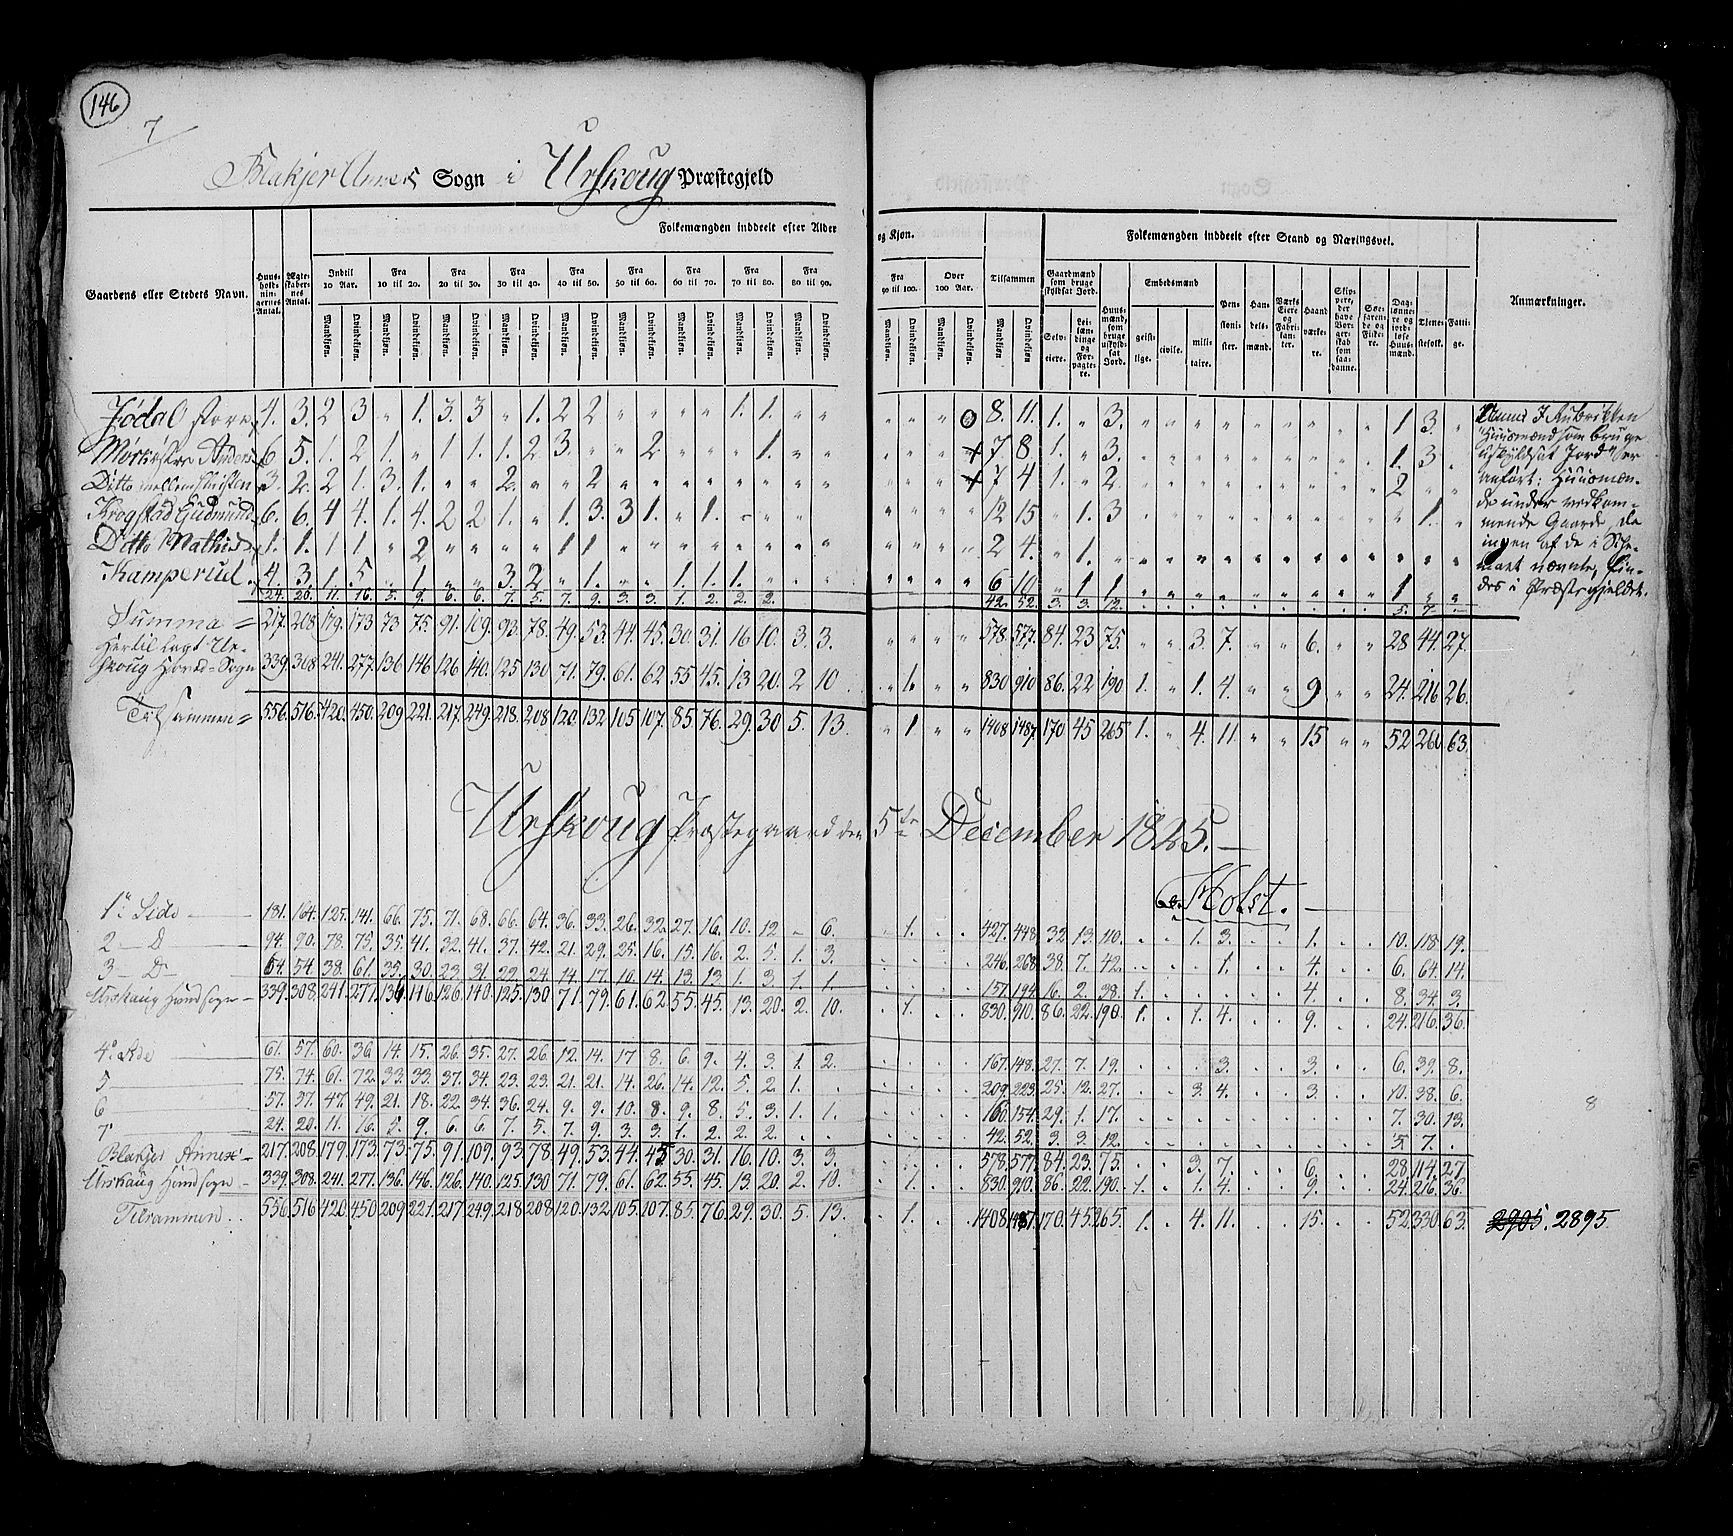 146
7
Blakjer Annex Sogn i Urskoug Præstegjeld
Folkemængden inddeelt efter Alder og Kjøn.
Folkemængden inddeelt efter Stand og Næringsvei.
Gaardens eller Stedets Navn.
Huus-holdnin-gernes Antal.
Ægte-skaber-nes Antal.
Indtil 10 Aar.
Fra 10 til 20.
Fra 20 til 30.
Fra 30 til 40.
Fra 40 til 50.
Fra 50 til 60.
Fra 60 til 70.
Fra 70 til 80.
Fra 80 til 90.
Fra 90 til 100.
Over 100 Aar.
Tilsammen
Gaardmænd som bruge skyldsat Jord.
Embedsmænd
Anmærkninger.
Mandkjøn. Qvindekjøn.
Selv-eiere.
Lei-læn-dinge og For-pagte-re.
Huus-mænd, som bruge uskyld-sat Jord.
geist-lige.
civile.
mili-taire.
Pen-sioni-ster.
Han-dels-mænd.
Værks Eiere og Fabri-kan-ter.
Haand værke-re.
Skip-pere, der have Bor-ger-skab som saa-danne.
Søe-faren-de og Fiske-re.
Dag-lønne-re og jord-løse Huus-mænd.
Tjene-stefolk.
Fatti-ge.
Jødal store 4. 3. 2 3 " 1. 3. 3 " 1. 2 2 " " " " " " 1. 1. " " " " " 8. 11. 1. " 3. " " " " " " " " " 1 3. "
Mørkøskre Anders 6 5. 1. 2 1. " 1 1 1. 2 3. " " 2 " " " 1. " " 7 8. 1. " 3. 1. 3
Ditto mellem 3. 2. 2 1. 3. 1. " " 2. " " 2 7 4 1. " 2 2 " "
Krogstad Gudmund 6. 6. 4 4. 1. 4. 2 2 1. " 1. 3. 3 1. " 1. 12 15 " 1. 3 " 1. "
Ditto Mathis 1. 1. 1 1 " 2 " " " " 1 1 2 4. " 1.
Kamperud 4. 3. 1. 5 " 1. " " 3. 2 " 1. " " 1. 1. 1. 6 10 " 1 1 1 " "
24. 20. 11. 16. 5. 9. 6. 6. 7. 5. 7. 9. 3. 3. 1. 2. 2. 2. 42. 52. 3. 3. 12. 5. 7.
Summa = 217. 208 179. 173 73 75. 91. 109. 93. 78. 49. 53. 44. 45. 30. 31. 16 10. 3. 3. 578. 577. 84. 23 75. " " 3. 7. " " 6. " " 28 44 27.
Hertil lagt Ur-
skoug Hoved-Sogn 339. 308. 241. 277. 136 146 126 140. 125 130 71. 79. 61. 62 55 45. 13 20. 2 10 1. 830 910 86. 22 190 1. " 1. 4. " " 9 24. 216 26.
Tilsammen = 556. 516. 420. 450. 209 221. 217. 249. 218. 208. 120. 132 105 107. 85 76. 29. 30 5. 13. " 1 " " 1408 1487. 170 45 265 1. " 4. 11. " " 15 " " 52 260 63.
Anm: I Rubrikken
"Huusmænd som bruge
uskyldsat Jord" er
anført: Huusmæn-
de under vedkom-
mende Gaarde, da
ingen af de i Sche-
maet nævnte, fin-
des i Præstegjeldet.
Urskoug Præstegaard den 5te December 1825.
Holst.
1e Side 181. 164. 125. 141. 66. 75. 71. 68. 66. 64. 36. 33. 26. 32. 27. 16. 10. 12. " 6. 1. 427. 448. 32. 13. 110. 1. 3. 1. 10. 118. 19.
2 — D 94. 90. 78. 75. 35. 41. 32. 41. 37. 42. 21. 29. 25. 16. 15. 16. 2. 5. 1. 3. 246. 268. 38. 7. 42. 1. 4. 6. 64. 14.
3 — D 64. 54. 38. 61. 35. 30. 23. 31. 22. 24. 14. 17. 10. 14. 13. 13. 1. 3. 1. 1. 157. 194. 16. 2. 38. 1. 4. 8. 34. 3.
Urskaug Hovedsogn 339. 308. 241. 277. 136 146. 126. 140. 125. 130 71. 79. 61. 62. 55. 45. 13. 20. 2. 10. 1. 830. 910. 86. 22. 190. 1. 1. 4. 9. 24. 216. 36.
4e Side 61. 57. 60. 36. 14. 15. 26. 35. 27. 26. 12. 14. 17 8. 6. 9. 4. 3. 1. 2. 167. 148. 27. 7. 19. 3. 3. 6. 39. 8.
5 75. 74. 61. 72. 33. 33. 37. 34. 23. 23. 21. 21. 14. 26. 14. 12. 5. 2 1. 209. 223. 25. 12. 27. 3. 4. 3. 10. 38. 6.
6 57. 57. 47. 49. 21. 18. 22. 34. 36. 24. 9. 9. 10. 8. 9. 8. 5. 3. 1. 1. 160. 154. 29. 1. 17. 7. 30. 13.
7 24. 20. 11. 16. 5. 9. 6. 6. 7. 5. 7. 9. 3. 3. 1. 2. 2. 2. 42. 52. 3. 3. 12. 5 7.
8
Blakjer Annex 217. 208. 179. 173. 73. 75. 91. 109. 93 78. 49. 53. 44. 45. 30. 31. 16. 10. 3. 3. 578. 577. 84. 23. 75. 3. 7. 6. 28 114 27
Urskaug Hovedsogn 339. 308. 241. 277. 136. 146. 126. 140. 125. 130 71. 79. 61. 62. 55. 45. 13 20. 2. 10. 1. 830. 910. 86. 22. 190. 1. 1. 4. 9. 24. 216. 36.
Tilsammen 556. 516 420 450 209 221. 217. 249. 218 208 120. 132 105. 107. 85 76. 29. 30. 5. 13. 1. 1408 1487. 170. 45. 265. 1. 4. 11. 15. 52. 330. 63. 2905. 2895.